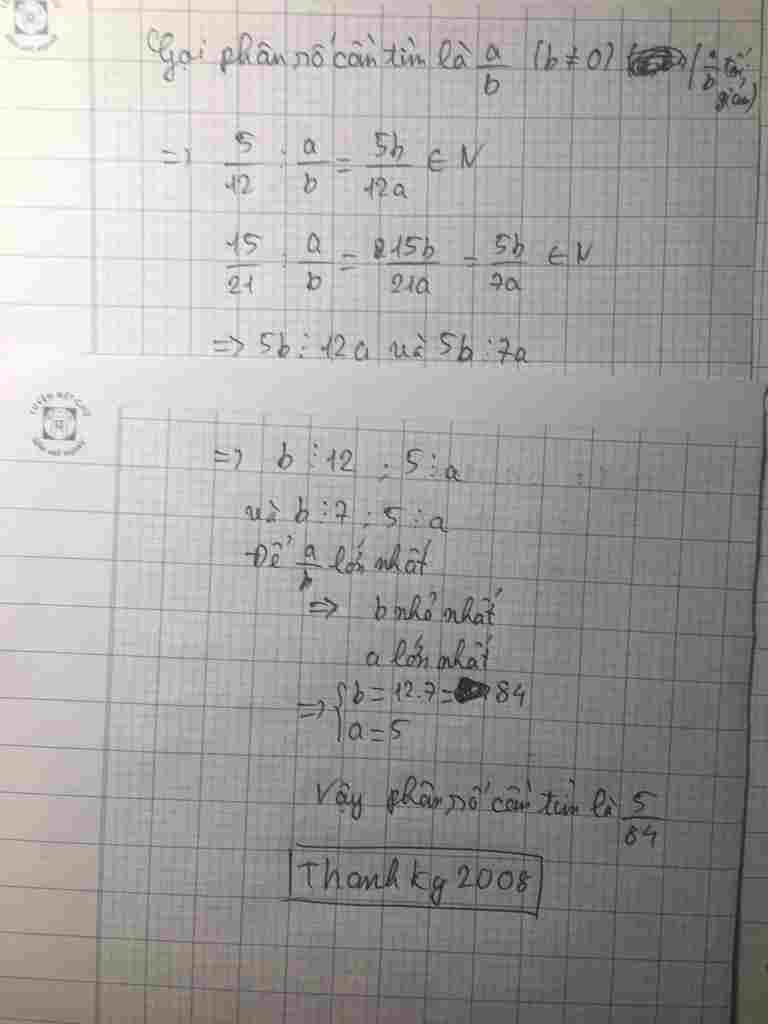 Gọi phân số cần tìm là a/b (b ≠ 0) (a/b tối giản)
=> 5/12 : a/b = 5b/12a ∈ N
15/21 : a/b = 15b/21a = 5b/7a ∈ N
=> 5b ⋮ 12a và 5b ⋮ 7a
TUYỆN NÉT CHỮ
=> b ⋮ 12 ; 5 ⋮ a
và b ⋮ 7 ; 5 ⋮ a
Để a/b lớn nhất
=> b nhỏ nhất
a lớn nhất
=> { b = 12.7 = 84
a = 5
Vậy phân số cần tìm là 5/84
Thanh kg 2008